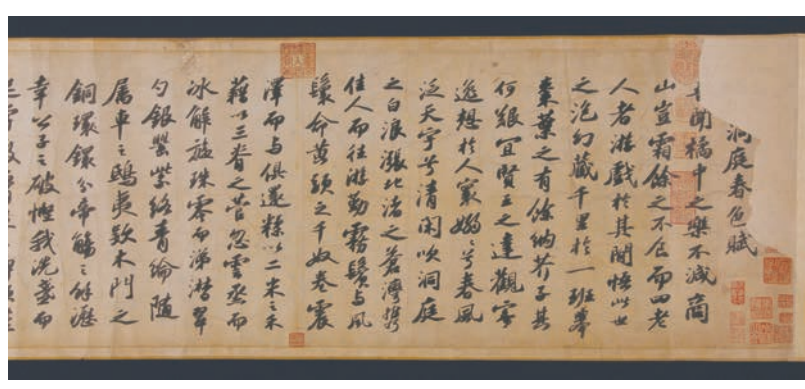 洞庭春色賦
聞橘中之樂不減商
山豈霜餘之不食而四老
人者游戲於其間悟此世
之泡幻藏千里於一班舉
棗葉之有餘納芥子其
何艱宜賢王之達觀寄
逸想於人寰嫋〻兮春風
泛天宇兮清閑吹洞庭
之白浪漲北渚之蒼灣攜
佳人而往游勤霧鬢與風
鬟命黃頭之千奴卷震
澤而与俱還糅以二米之禾
藉以三脊之菅忽雲烝而
冰解旋珠零而涕潸翠
勺銀罌紫絡青綸隨
屬車之鴟夷款木門之
銅環鐶分帝觴之餘瀝
幸公子之破慳我洗盞而